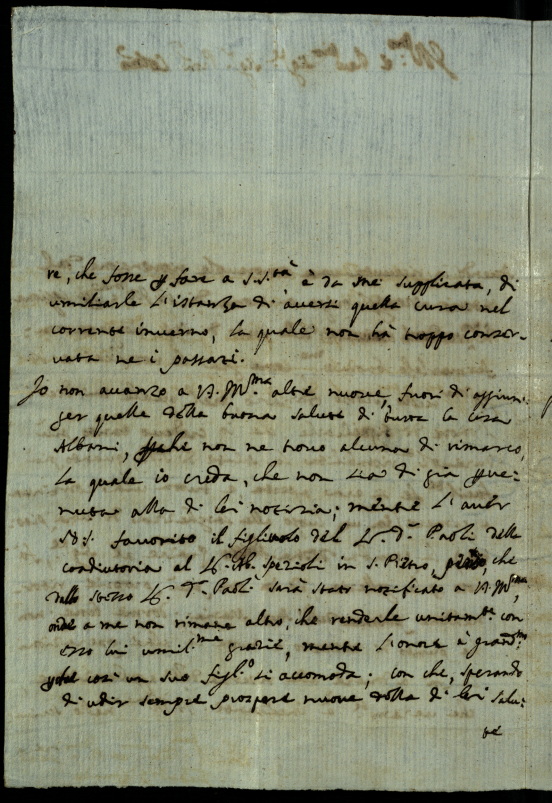 re, che fosse p fare a S. S.tà, è da me supplicata, di
umiliarle l'istanza di aversi quella cura nel
corrente inverno, la quale non hà troppo conser-
vata ne i passati.
Io non avanzo a V. M.ma altre nuove, fuori di aggiun-
ger quelle della buona salute di tutta la casa
Albani, non ne trovo alcuna di rimarco,
la quale io creda, che non sia di già pve-
nuta alla di lei notizia; mentre l'aver
S. S. favorito il figliuolo del S.r D.r Paoli della
coadiutoria al S.r Ab. Spezioli in S. Pietro, che
dallo stesso S.r D.r Paoli sarà stato notificato a V. M.ma,
onde a me non rimane altro, che renderle unitam.te con
esso lui umil.me grazie, mentre l'onore è grand.mo
che così un suo figl.o si accomoda; con che, sperando
di udir sempre prospere nuove della di lei salu-
te